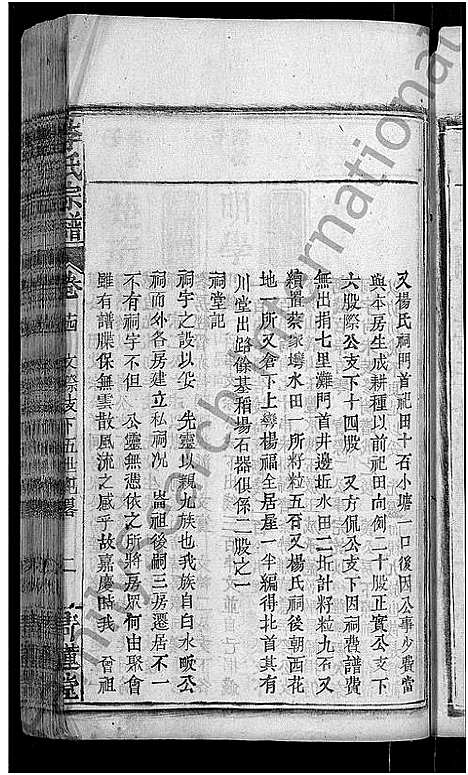 又楊氏祠門首祀田十石小塘一口後因公事少費當
與本房生成耕種以前祀田向例二十股正實公支下
六股際公支下十四股 又方侃公支下因祠費譜費
無出捐七里灘門首井邊坵水田二坵計籽粒九石又
續置蔡家塆水田一所籽粒五石又楊氏祠後朝西花
地一所又倉下上塆楊福全居屋一半編得北首其有
川堂出路餘基稻場石器俱係二股之一
祠堂記
祠宇之設以妥 先靈以親九族也我族自白水畈公
祠而外各房建立私祠况 崙祖後嗣三房遷居不一
不有祠宇不但 公靈無憑依之所將房眾何由聚會
雖有譜牒保無雲散風流之感乎故嘉慶時我 晉祖
李氏宗譜
卷 文際技下五世紀畧 二
familysearch international